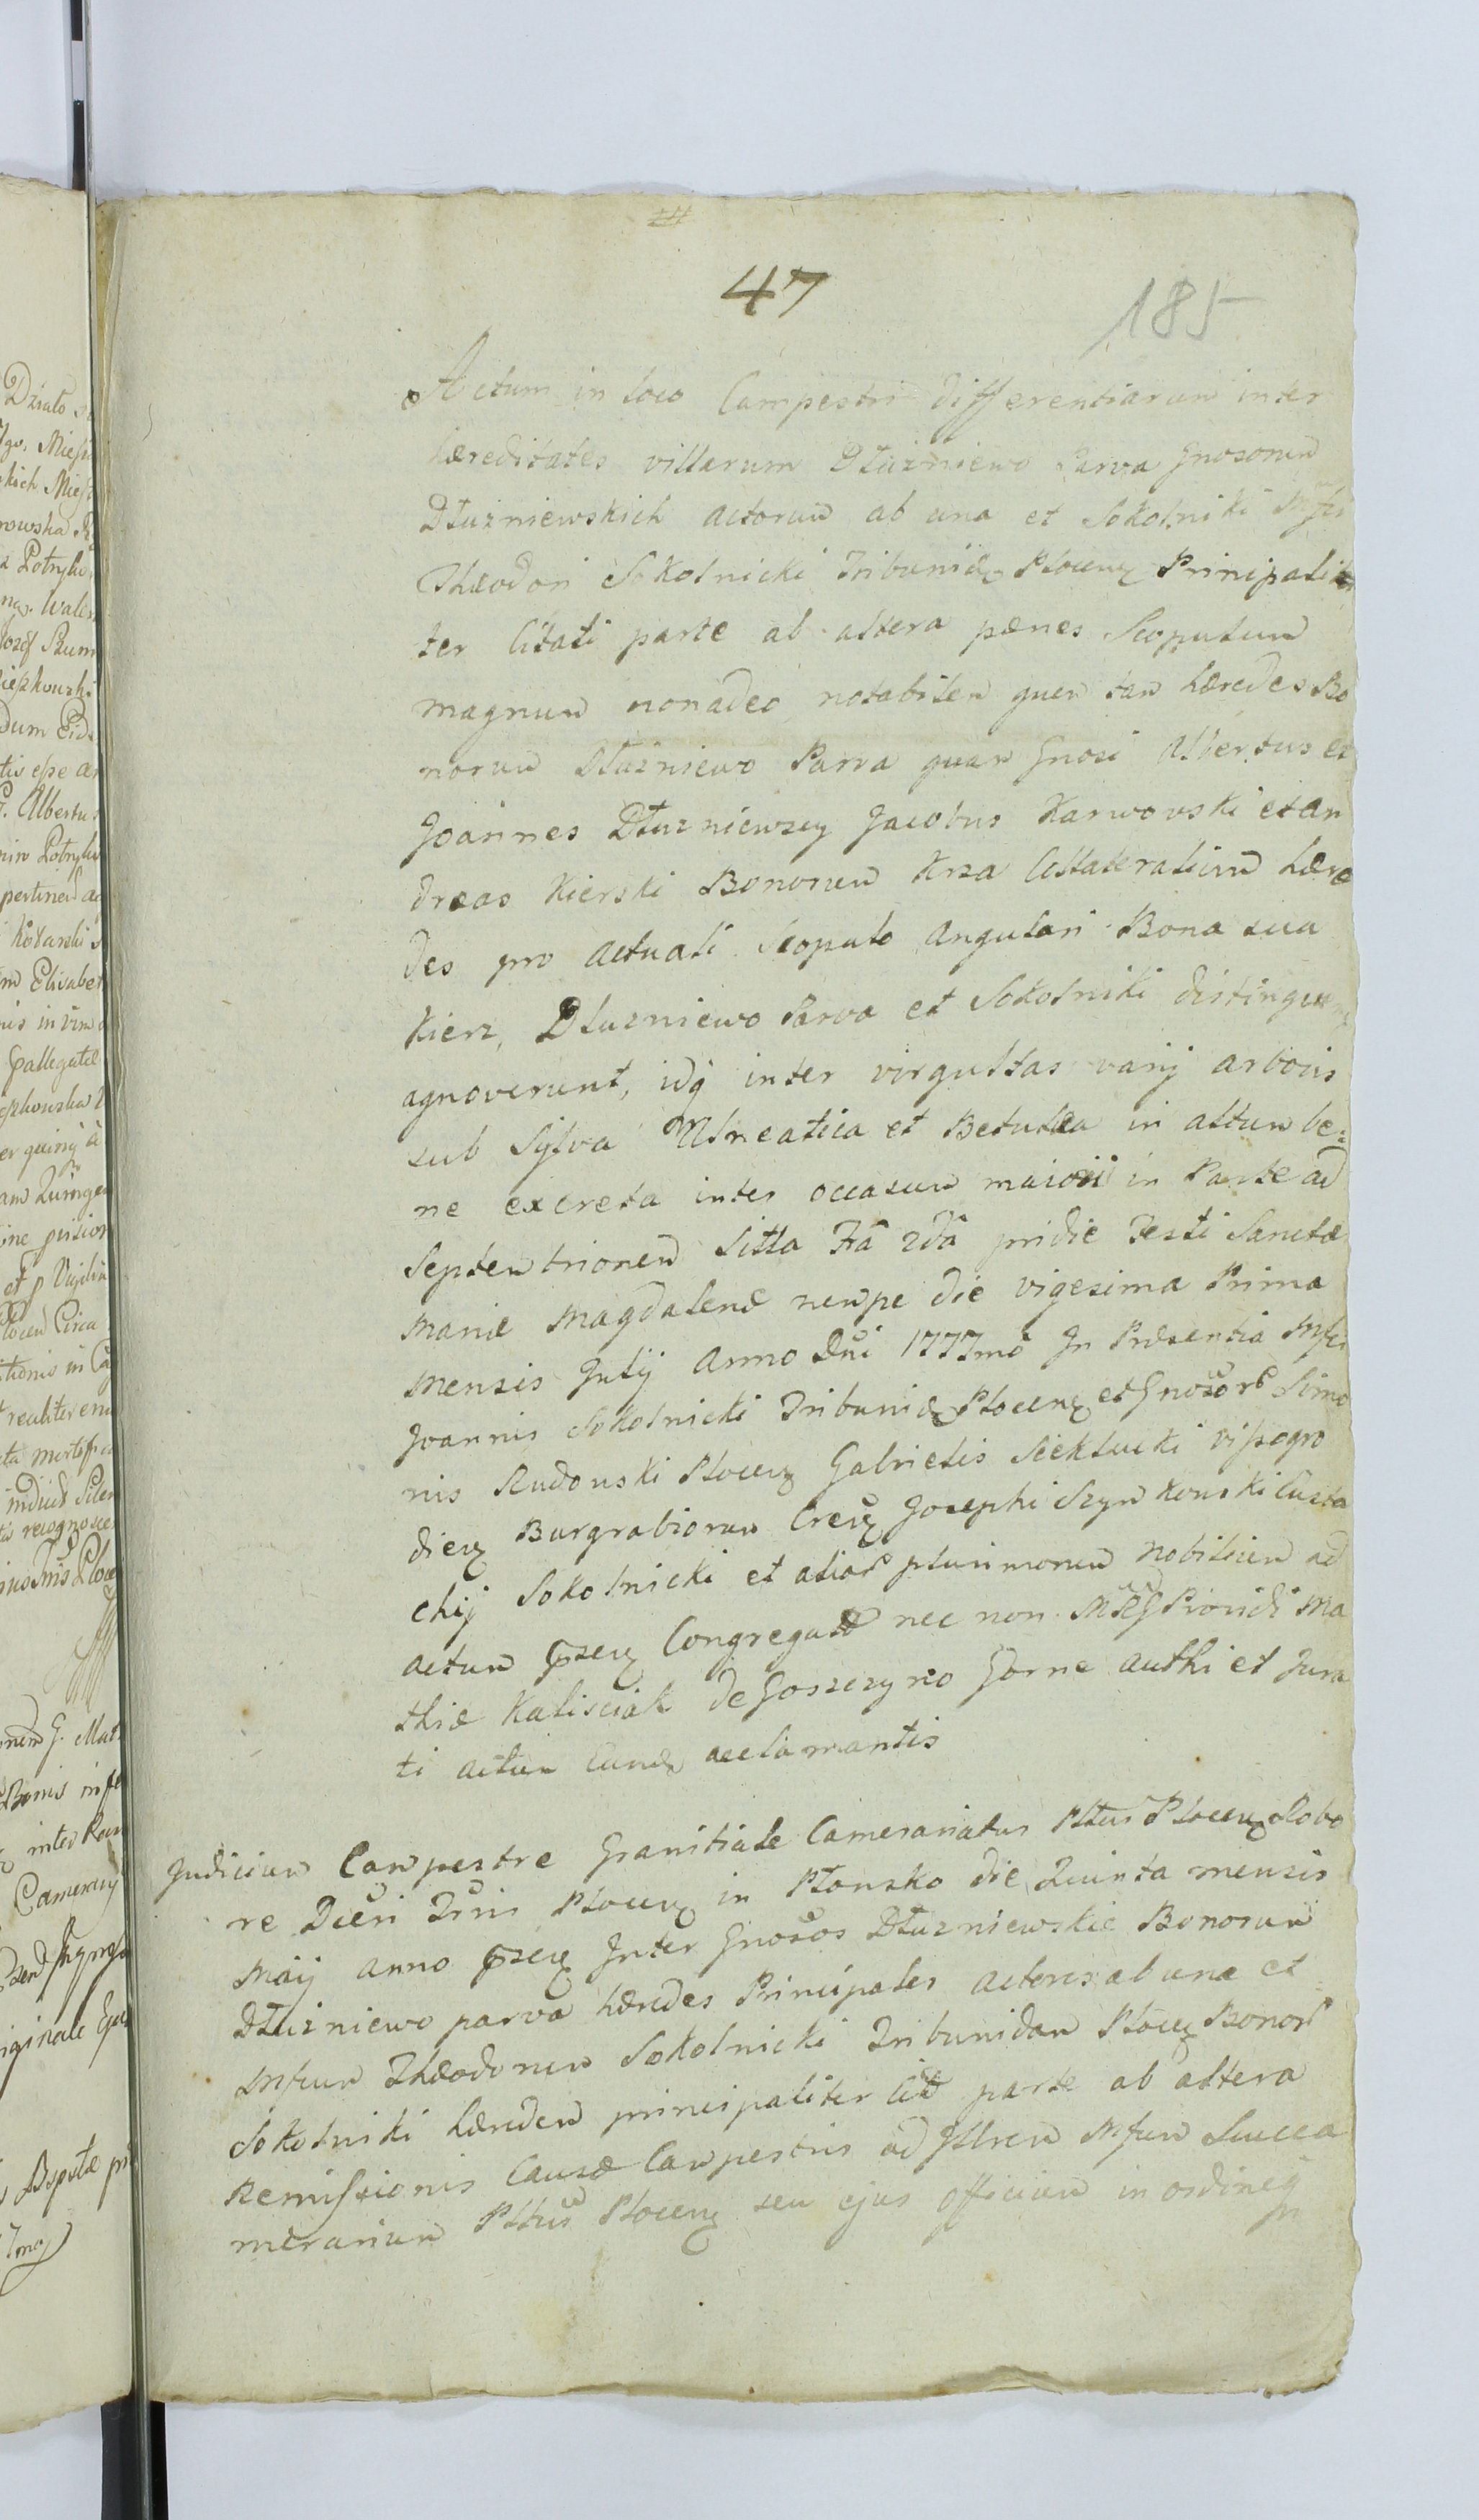 47
185
Actum in loco Campestri differentiarum inter
hæreditates villarum Dłużniewo Parva Gnosorum
Dłużniewskich Actorum ab una et Sokolniki Mfci
Theodori Sokolnicki Tribunidæ Plocen Principali
ter Citati parte ab altera pænes Scopulum
magnum nonadeo notabilem quem tam hæredes Bo
norum Dłużniewo Parva quam Gnosi Albertus et
Joannes Dłużniewscy Jacobus Karwowski et An
dreas Kierski Bonorum Krza Collateralium hære
des pro actuali Scopulo Angulari Bona sua
Kierz, Dłużniewo Parva et Sokolniki distinguen
agnoverunt, idq inter virgultas varij arboris
sub Sylva Alneatica et Betulea in altum be:
ne excreta inter occasum maioii in Parte ad
Septemtrionem Sitta Fâ 2dâ pridie Festi Sanctæ
Mariæ Magdalenæ nempe die vigesima Prima
Mensis Julij Anno Dni 1777mô In Præsentia Mfci
Joannis Sokolnicki Tribunidæ Plocen et Gnosor Simo
nis Rudowski Plocen Gabrielis Siekłucki vissogro
dien Burgrabiorum Cren Josephi Szymkowski Eusta
chij Sokolnicki et alior plurimorum nobilium ad
actum pzen Congregat nec non Mrg Providi Ma
thiæ Kalisciak de Goszczyno Gorne authi et Jura
ti actum eund acclamantis
Judicium Campestre Granitiale Camerariatus Pltus Plocen Robo
re Dcti Tris Plocen in Płonsko die Quinta mensis
Maij anno pzen Inter Gnosos Dłużniewskie Bonorum
Dłużniewo parva hæredes Principales actores ab una et
Mfcum Theodorum Sokolnicki Tribunidam Plocen Bonor
Sokolniki hæredem principaliter Cit parte ab altera
Remissionis Causæ Campestris ad Illrem Mfcum Succa
merarium Pltus Plocen seu ejus officium in ordineq